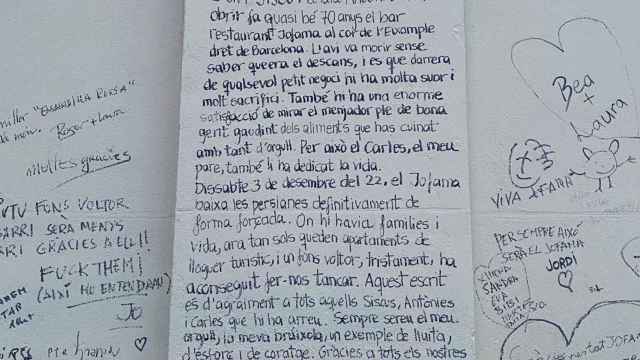 obrir fa quasi bé 70 anys el bar
restaurant Jofama al cor de l'Eixample
dret de Barcelona. L'avi va morir sense
saber que era el descans, i es que darrera
de qualsevol petit negoci hi ha molta suor i
molt sacrifici. També hi ha una enorme
satisfacció de mirar el menjador ple de bona
gent gaudint dels aliments que has cuinat
amb tant d'orgull. Per això el Carles, el meu
pare, també li ha dedicat la vida.
Dissabte 3 de desembre del 22, el Jofama
baixa les persianes definitivament de
forma forçada. On hi havia families i
vida, ara tan sols queden apartaments de
lloguer turistic, i un fons voltor, tristament, ha
aconseguit fer-nos tancar. Aquest escrit
es d'agraiment a tots aquells Siscus, Antònies
i Carles que hi ha arreu. Sempre sereu el meu
orgull, la meva brúixola, un exemple de lluita,
d'esforç i de coratge. Gràcies a tots els nostres
Roser + Laura
Moltes gracies
FONS VOLTOR
SERÀ MENYS
GRÀCIES A ELL!!
FUCK THEM!
(AIXÍ HO ENTENDRAN)
Jo
Bea
+
Laura
VIVA JOFAMA
PER SEMPRE AIXÒ
SERÀ EL JOFAMA
JORDI
SANDRA